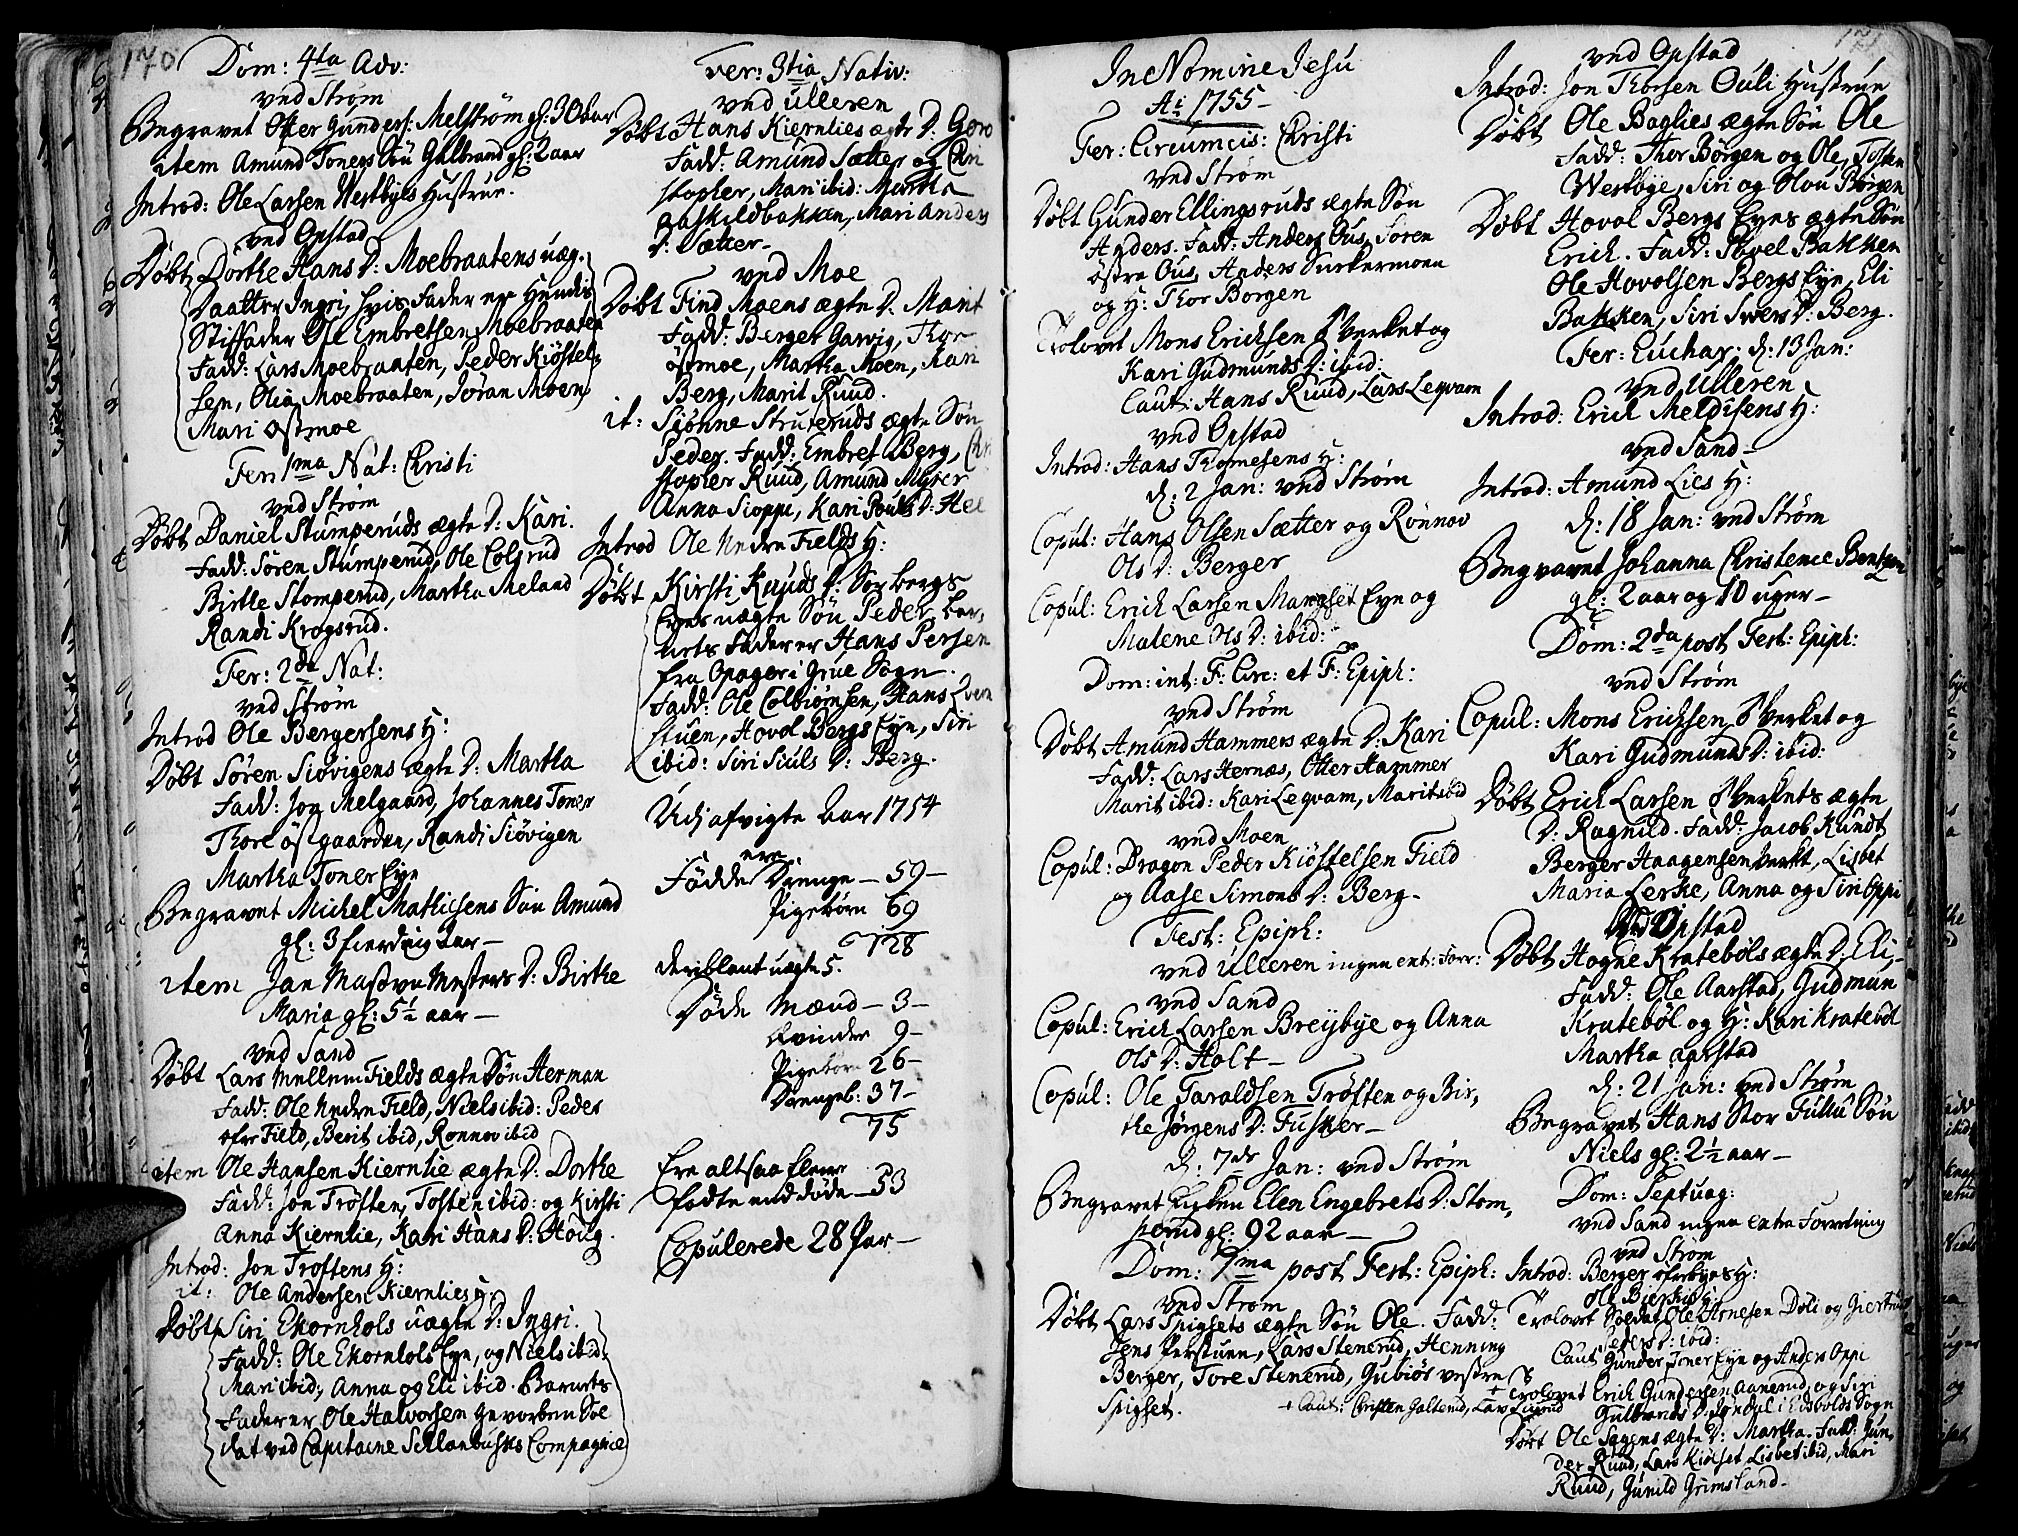 170
Dom: 4ta Adv:
ved Strøm
Begravet Otter Gunders: Melstrøm gl: 30 aar
item Amund Toners Søn Gulbrand gl: 2 aar
Introd: Ole Larsen Westbyes Hustrue.
ved Opstad
Døbt Dorthe Hans D: Moebraatens uæg.
Daatter Ingri, hvis Fader er hendis
Stiffader Ole Embretsen Moebraaten
Fadd: Lars Moebraaten, Peder Kiøstel-
sen, Olia Moebraaten, Jøran Moen
Mari Østmoe
Fer: 1ma Nat: Christi
ved Strøm
Døbt Daniel Stumperuds ægte D: Kari.
Fadd: Søren Stumperud, Ole Colsrud
Birthe Stomperud, Martha Meland
Randi Krogsrud.
Fer: 2da Nat:
ved Strøm
Introd Ole Bergersens H:
Døbt Søren Siøvigens ægte D: Martha
Fadd: Jon Melgaard, Johannes Toner
Thore Østgaarden, Randi Siøvigen
Martha Toner Eye
Begravet Michel Mathisens Søn Amund
gl: 3 fierding aar -
item Jan Masvu Mesters D: Birthe
Maria gl: 5½ aar -
ved Sand
Døbt Lars Mellem Fields ægte Søn Herman
Fadd: Ole Nedre Field, Niels ibid: Peder
øfre Field, Berit ibid, Rønnov ibid
item Ole Hansen Kiernlie ægte D: Dorthe
Fadd: Jon Trøften, Tosten ibid: og Kirsti
Anna Kiernlie, Kari Hans D: Houg.
Introd: Jon Trøftens H:
it: Ole Andersen Kiernlies H:
Døbt Siri Ekornhols uægte D: Ingri.
Fadd: Ole Ekornhols Eye, og Niels ibid.
Mari ibid, Anna og Eli ibid. Barnets
Fader er Ole Halvorsen gevorben Sol
dat ved Capitaine Schlanbusks Compagnie
Fer: 3tia Nativ:
ved Ulleren
Døbt Hans Kiernlies ægte D: Goro
Fadd: Amund Sætter og Chri
stopher, Mari ibid: Martha
Aaskildbakken, Mari Anders
D: Sætter -
ved Moe
Døbt Find Moens ægte D: Marit
Fadd: Berger Garvig, Thor
Østmoe, Martha Moen, Kari
Berg, Marit Ruud.
it: Siøhne Struteruds ægte Søn
Peder. Fadd: Embret Berg, Chri
stopher Ruud, Amund Myrer
Anna Sioppi, Kari Pouls D:
Introd Ole Nedre Fields H:
Døbt Kirsti Knuds D: Sør bergs
Eyes uægte Søn Peder, bar,
nets Fader er Hans Persen
fra Opager i Grue Sogn
Fadd: Ole Colbiørnsen, Hans
stuen, Hovol Bergs Eye, Siri
ibid: Siri Siuls D: Berg.
Udi afvigte Aar 1754
ere
Fødde Drenge - 59 -
Pigebørn 69
128
Deriblant uægte 5.
Døde Mænd - 3 -
Qvinder 9 -
Pigebørn 26 -
Drengeb: 37 -
75
Ere altsaa flere
fødte end døde - 53
Copulerede 28 Par -
171
In Nomine Jesu
Ao 1755 -
Fer: Circumcis: Christi
ved Strøm
Døbt Gunder Ellingsruds ægte Søn
Anders. Fadd: Anders Ous, Søren
østre Ous, Anders Surkermoen
og H: Thor Borgen
Trolovet Mons Erichsen Verket og
Kari Gudmunds D: ibid:
Caut: Hans Ruud, Lars Leqvam
ved Opstad
Introd: Hans Thomesens H:
d: 2 Jan: ved Strøm
Copul: Hans Olsen Sætter og Rønnov
Ols D: Berger
Copul: Erich Larsen Mangset Eye og
Malene Ols D: ibid:
Dom: int: F: Circ: et F: Epiph:
ved Strøm
Døbt Amund Hammers ægte D: Kari
Fadd: Lars Hernæs, Otter Hammer
Marit ibid: Kari Leqvam, Marit ibid
ved Moen
Copul: Dragon Peder Kiøstelsen Field
og Aase Simons D: Berg -
Fest: Epiph:
ved Ulleren ingen ext: Forr:
ved Sand
Copul: Erich Larsen Breybye og Anna
Ols D: Holt -
Copul: Ole Taraldsen Trøften og Bir,
the Jørgens D: Fusker -
d: 7de Jan: ved Strøm
Begravet Enken Elen Engebrets D: Stom,
perud gl: 92 aar -
Dom: 1ma post Fest: Epiph:
ved Strøm
Døbt Lars Spigsets ægte Søn Ole. Fadd:
Jens Perstuen, Lars Stenerud, Henning
Berger, Tore Stenerud, Gubiør vestre
Spigset.
+ Caut: Christen Galterud, Lars Lierud
ved Opstad
Introd: Jon Thorsen Ouli Hustrue
Døbt Ole Baglies ægte Søn Ole
Fadd: Thor Børgen og Ole, Tosten
Westbye, Siri og Olou Børgen
Døbt Hovol Bergs Eyes ægte Søn
Erich. Fadd: Povel Bakken
Ole Hovolsen Bergs Eye, Eli
Bakken, Siri Swers D: Berg.
Fer: Euchar: d: 13 Jan:
ved Ulleren
Introd: Erich Meldisens H:
ved Sand -
Introd: Amund Lies H:
d: 18 Jan: ved Strøm
Begravet Johanna Christence Bentzen
gl: 2 aar og 10 uger -
Dom: 2da post Fest: Epiph:
ved Strøm
Copul: Mons Erichsen Verket og
Kari Gudmunds D: ibid:
Døbt Erich Larsen Verkets ægte
D: Ragnild. Fadd: Jacob Kundt
Berger Haagensen Verket, Lisbet
Maria Lerke, Anna og Siri Oppi
Ved Opstad
Døbt Hogne Kratebøls ægte D: Eli,
Fadd: Ole Aarstad, Gudmun
Kratebøl og H: Kari Kratebøl
Martha Aarstad
d: 21 Jan: ved Strøm
Begravet Hans Stor Fuliu Søn
Niels gl: 2½ aar -
Dom: Septuag:
ved Sand ingen extra Forretning
ved Strøm
Introd: Berger øfrebyes H:
Ole Bierkis H:
Trolovet Soldat Ole Arnesen Doli og Giertrud
Peders D: ibid:
Caut: Gunder Toner Eye og Anders Oppi
+ Trolovet Erich Gundersen Aanerud og Siri
Gulbrands D: Dyndal i Eidsvolds Sogn
Døbt Ole Sagens ægte D: Martha. Fadd: Gun,
der Ruud, Lars Kiølset, Lisbet ibid, Mari
Ruud, Gunild Grimsland -